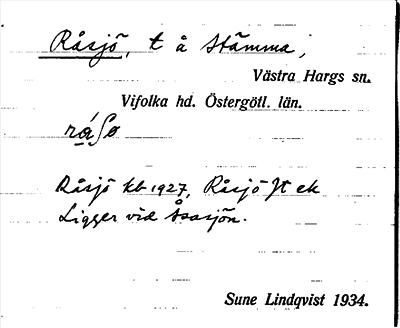 Råsjö, t å Stämma,
Västra Hargs sn.
Vifolka hd. Östergötl. län.
råʃø
Råsjö kb 1927, Råsjö Jt ek
Ligger vid Åsasjön.
Sune Lindqvist 1934.